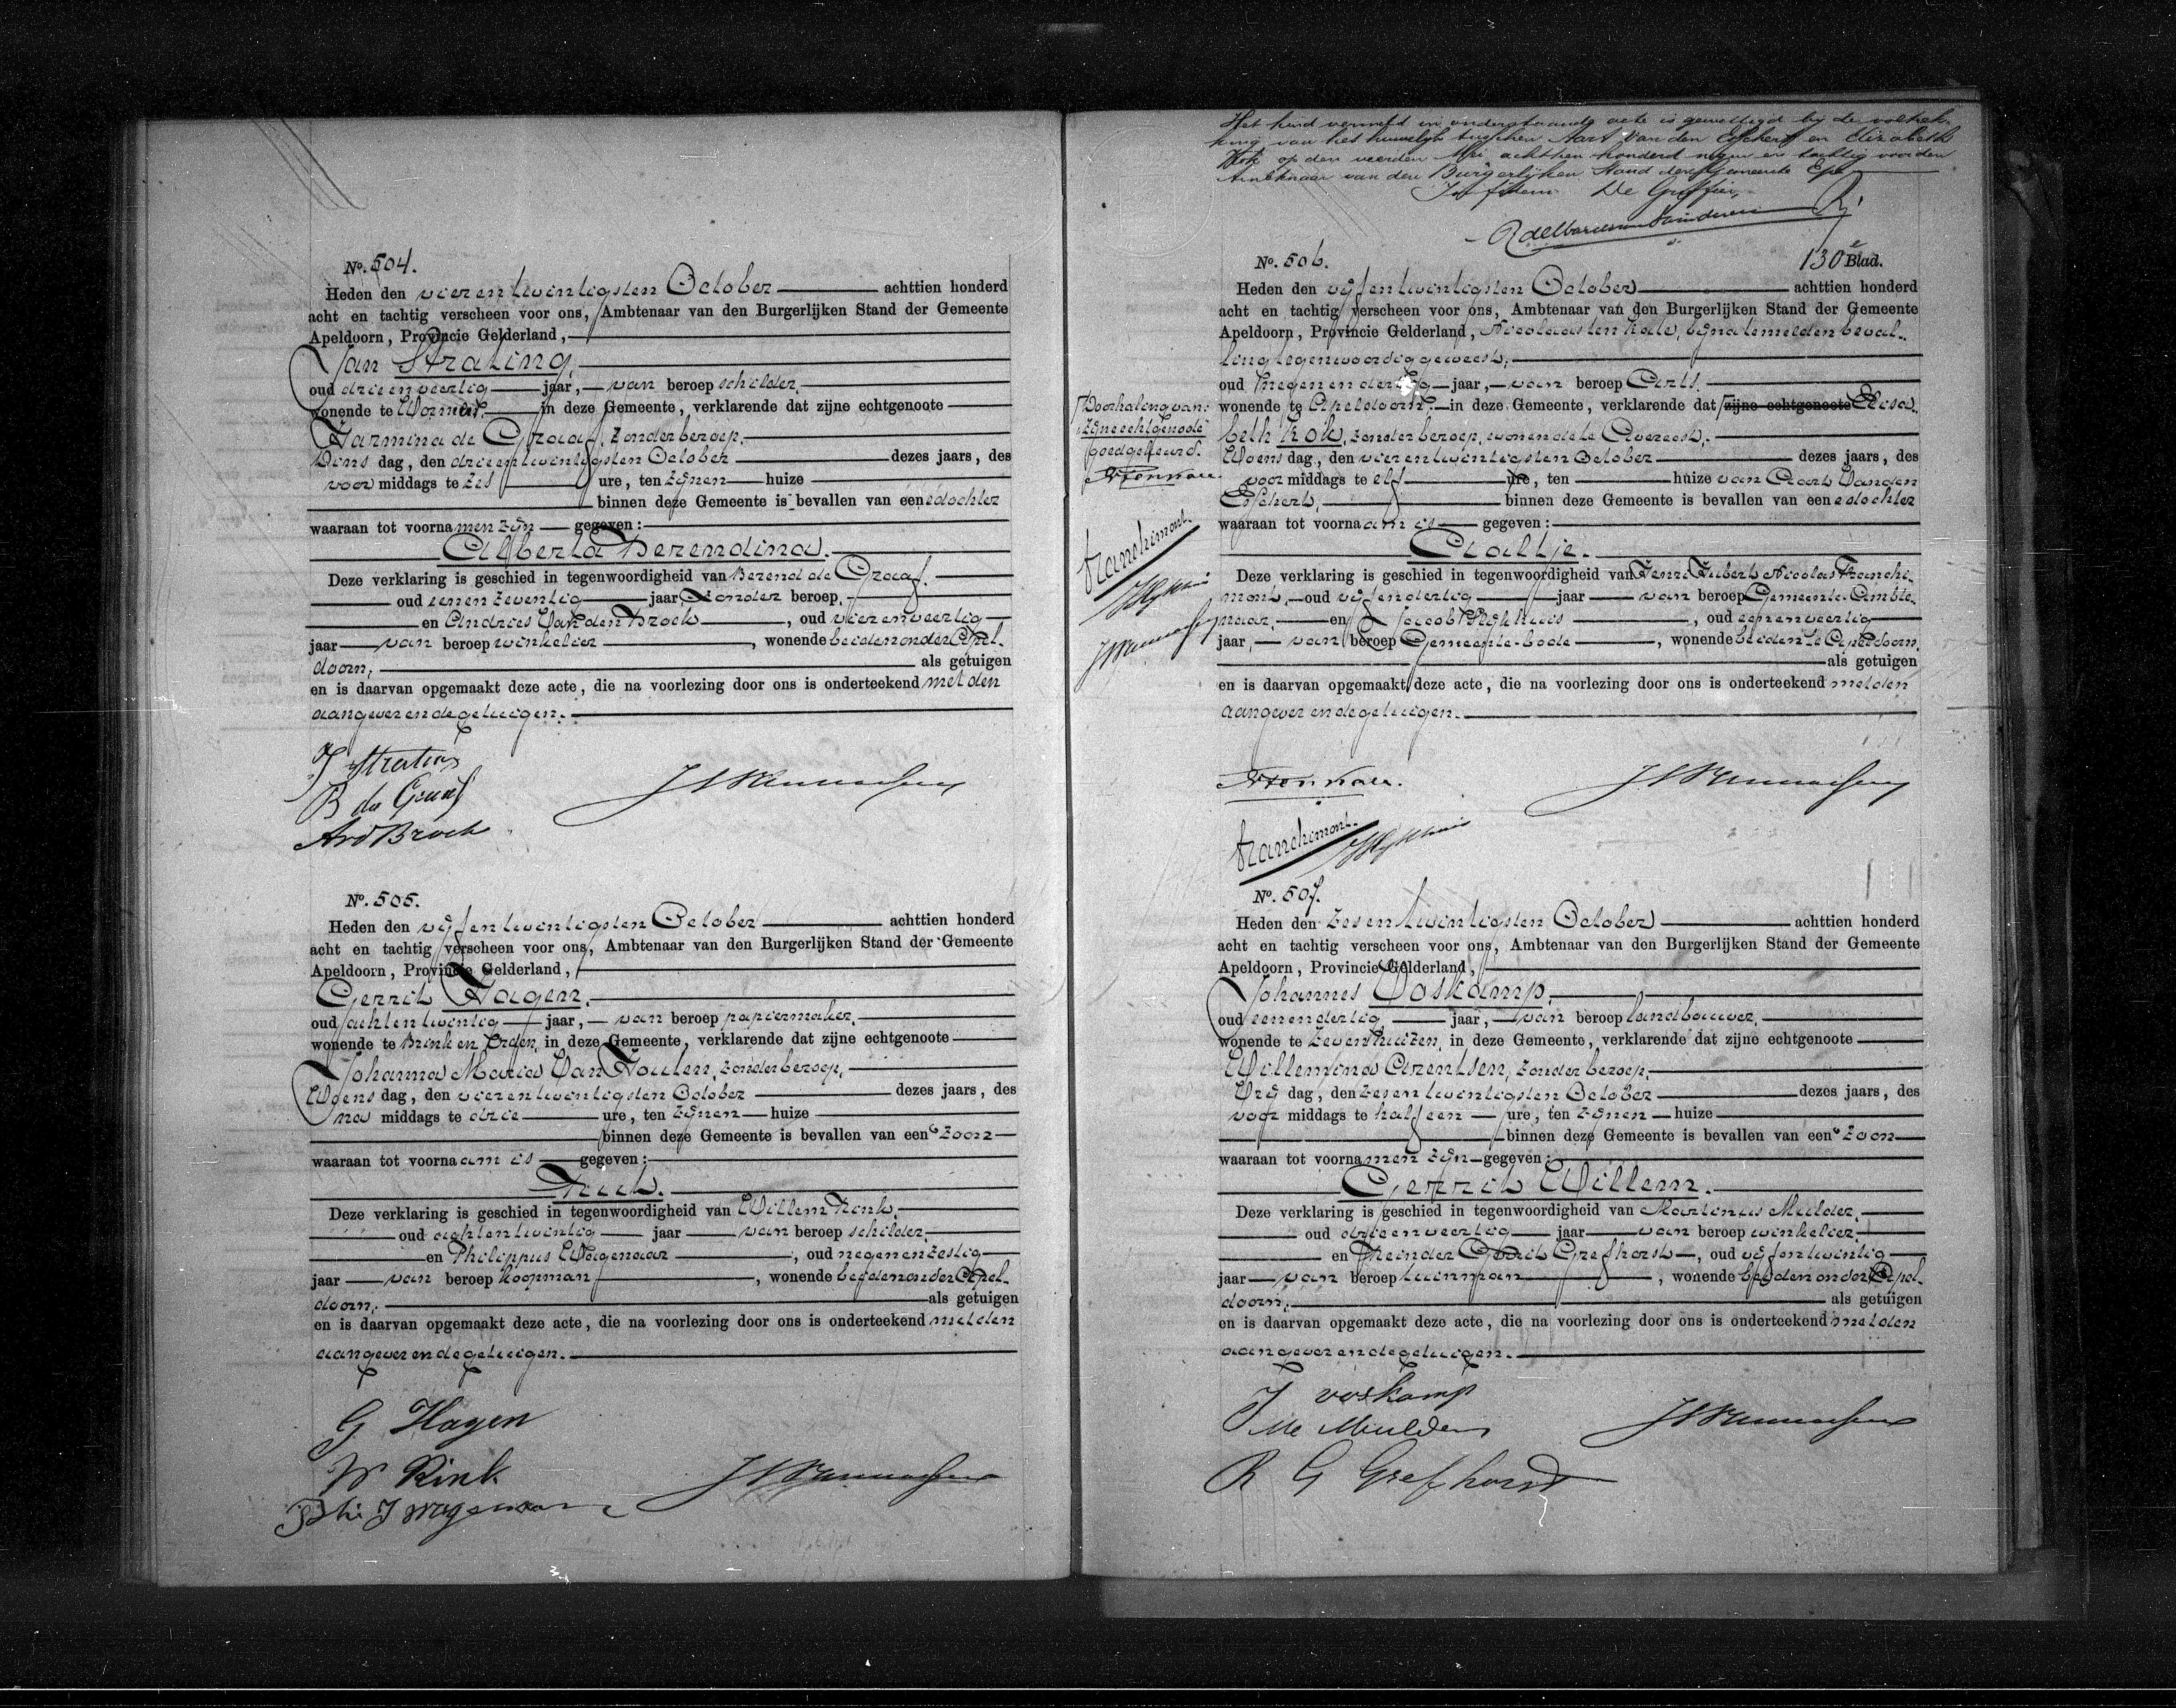 No. 504.
Heden den vier en twintigsten October achttien honderd
acht en tachtig verscheen voor ons, Ambtenaar van den Burgerlijken Stand der Gemeente
Apeldoorn, Provincie Gelderland,
Jan Strating,
oud drie en veertig jaar, van beroep schilder,
wonende te Wormen, in deze Gemeente, verklarende dat zijne echtgenoote
Harmina de Graaf, zonder beroep,
Dins dag, den drie en twintigsten October dezes jaars, des
voor middags te zes ure, ten zijnen huize
binnen deze Gemeente is bevallen van eene dochter
waaraan tot voornamen zijn gegeven:
Alberta Berendina.
Deze verklaring is geschied in tegenwoordigheid van Berend de Graaf,
oud een en zeventig jaar, zonder beroep,
en Andries Van den Broek, oud vier en veertig
jaar van beroep winkelier, wonende beiden onder Apel-
doorn, als getuigen
en is daarvan opgemaakt deze acte, die na voorlezing door ons is onderteekend met den
aangever en de getuigen.
J Strating
B de Graaf
AvdBroek
No. 505.
Heden den vijf en twintigsten October achttien honderd
acht en tachtig verscheen voor ons, Ambtenaar van den Burgerlijken Stand der Gemeente
Apeldoorn, Provincie Gelderland,
Gerrit Hagen,
oud acht en twintig jaar, van beroep papiermaker,
wonende te Brink en Orden, in deze Gemeente, verklarende dat zijne echtgenoote
Johanna Maria Van Houten, zonder beroep,
Woens dag, den vier en twintigsten October dezes jaars, des
na middags te drie ure, ten zijnen huize
binnen deze Gemeente is bevallen van een zoon
waaraan tot voornaam is gegeven:
Deze verklaring is geschied in tegenwoordigheid van Willem Rink,
oud acht en twintig jaar van beroep schilder,
en Philippus Wagenaar, oud negen en zestig
jaar van beroep koopman, wonende beiden onder Apel-
doorn, als getuigen
en is daarvan opgemaakt deze acte, die na voorlezing door ons is onderteekend met den
aangever en de getuigen.
G Hagen
W Rink
J Wagenaar
Het kind vermeld in onderstaande acte is gewettigd bij de voltrek-
king van het huwelijk tusschen Aart Van den Esschert en Elizabeth
Kok op den veerden Mei achttien honderd negen en tachtig voor den
Ambtenaar van den Burgerlijken Stand der Gemeente Epe
De Griffier,
130e Blad.
No. 506.
Heden den vijf en twintigsten October achttien honderd
acht en tachtig verscheen voor ons, Ambtenaar van den Burgerlijken Stand der Gemeente
Apeldoorn, Provincie Gelderland, Nicolaas ten Kate, bij na te melden beval-
ling tegenwoordig geweest,
oud negen en dertig jaar, van beroep Arts,
wonende te Apeldoorn, in deze Gemeente, verklarende dat zijne echtgenoote Elisa-
beth Kok, zonder beroep, wonende te Avereest,
Woens dag, den vier en twintigsten October dezes jaars, des
voor middags te elf ure, ten huize van Aart Van den
Esschert, binnen deze Gemeente is bevallen van eene dochter
waaraan tot voornaam is gegeven:
Aaltje.
Deze verklaring is geschied in tegenwoordigheid van Henri Hubert Nicolas Franchi-
mont, oud vijf en dertig jaar van beroep Gemeente-Ambte-
naar, en Jacob, oud een en veertig
jaar, van beroep Gemeente-bode, wonende beiden te Apeldoorn,
als getuigen
en is daarvan opgemaakt deze acte, die na voorlezing door ons is onderteekend met den
aangever en de getuigen.
Doorhaling van:
"zijne echtgenoote"
goedgekeurd.
Ntenkate.
Franchimont.
Ntenkate.
Franchimont.
No. 507.
Heden den zes en twintigsten October achttien honderd
acht en tachtig verscheen voor ons, Ambtenaar van den Burgerlijken Stand der Gemeente
Apeldoorn, Provincie Gelderland,
Johannes Voskamp,
oud een en dertig jaar, van beroep landbouwer,
wonende te Zevenhuizen, in deze Gemeente, verklarende dat zijne echtgenoote
Willemina Arentsen, zonder beroep,
Vrij dag, den zes en twintigsten October dezes jaars, des
voor middags te half een ure, ten zijnen huize
binnen deze Gemeente is bevallen van een zoon
waaraan tot voornamen zijn gegeven:
Gerrit Willem.
Deze verklaring is geschied in tegenwoordigheid van Martinus Mulder,
oud drie en veertig jaar van beroep winkelier,
en Reinder Gerrit Grefhorst, oud vijf en twintig
jaar van beroep tuinman, wonende beiden onder Apel-
doorn, als getuigen
en is daarvan opgemaakt deze acte, die na voorlezing door ons is onderteekend met den
aangever en de getuigen.
J voskamp
M Mulder
R G Grefhorst